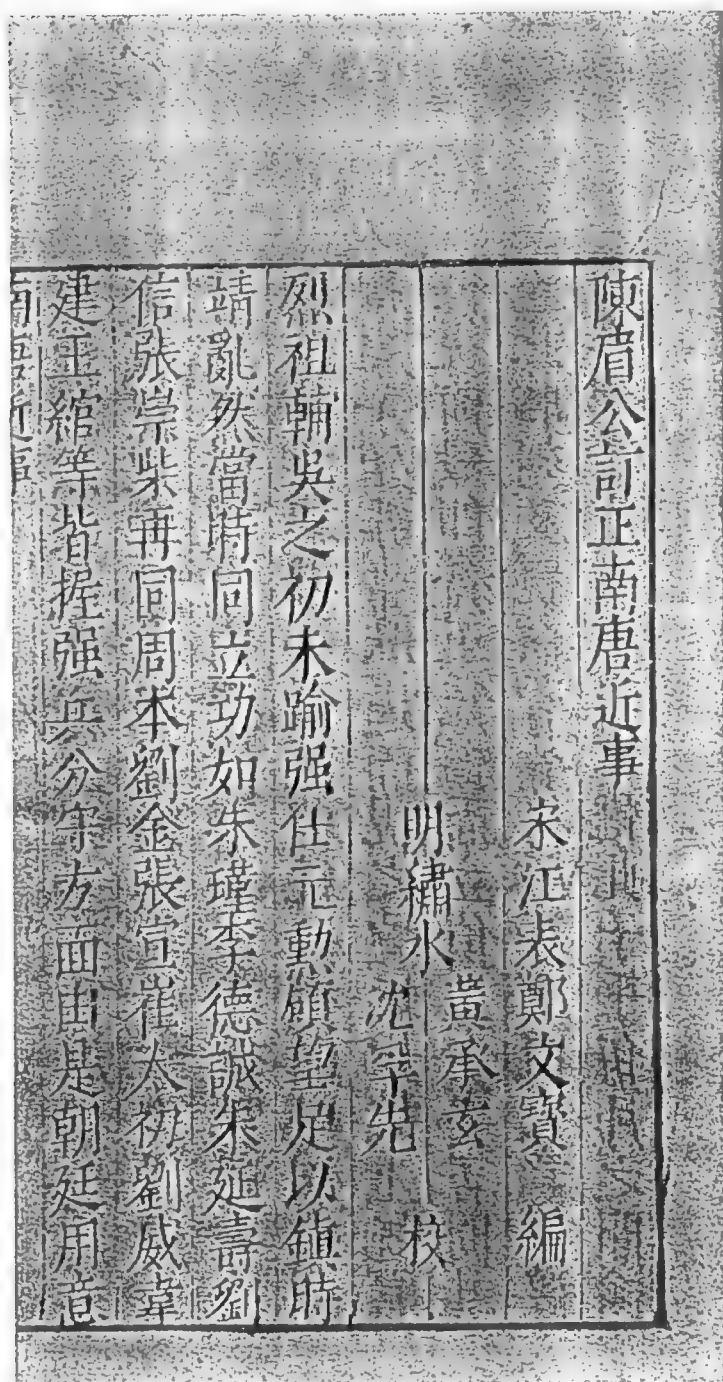 陳眉公訂正南唐近事
宋江表鄭文寶　編
黃承玄
明繡水　校
沈孚先
烈祖輔吳之初未踰强仕元勳碩望足以鎮時
靖亂然當時同立功如朱瑾李德誠朱延壽劉
信張崇柴再同周本劉金張宣崔太初劉威韋
建王綰等皆握强兵分守方面由是朝廷用意
南唐近事